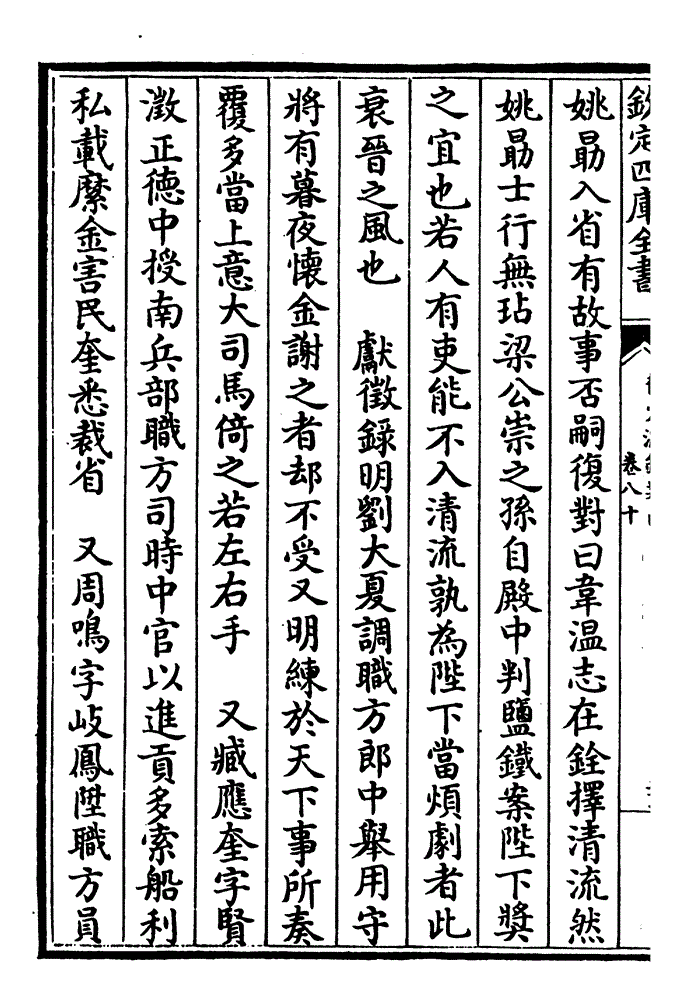 欽定四庫全書
卷八十
姚勗入省有故事否嗣復對曰韋温志在銓擇清流然
姚勗士行無玷梁公崇之孫自殿中判鹽鐵案陛下奬
之宜也若人有吏能不入清流孰為陛下當煩劇者此
衰晉之風也 獻徵錄明劉大夏調職方郎中舉用守
將有暮夜懷金謝之者却不受又明練於天下事所奏
覆多當上意大司馬倚之若左右手 又臧應奎字賢
澂正德中授南兵部職方司時中官以進貢多索船利
私載縻金害民奎悉裁省 又周鳴字岐鳳陞職方員